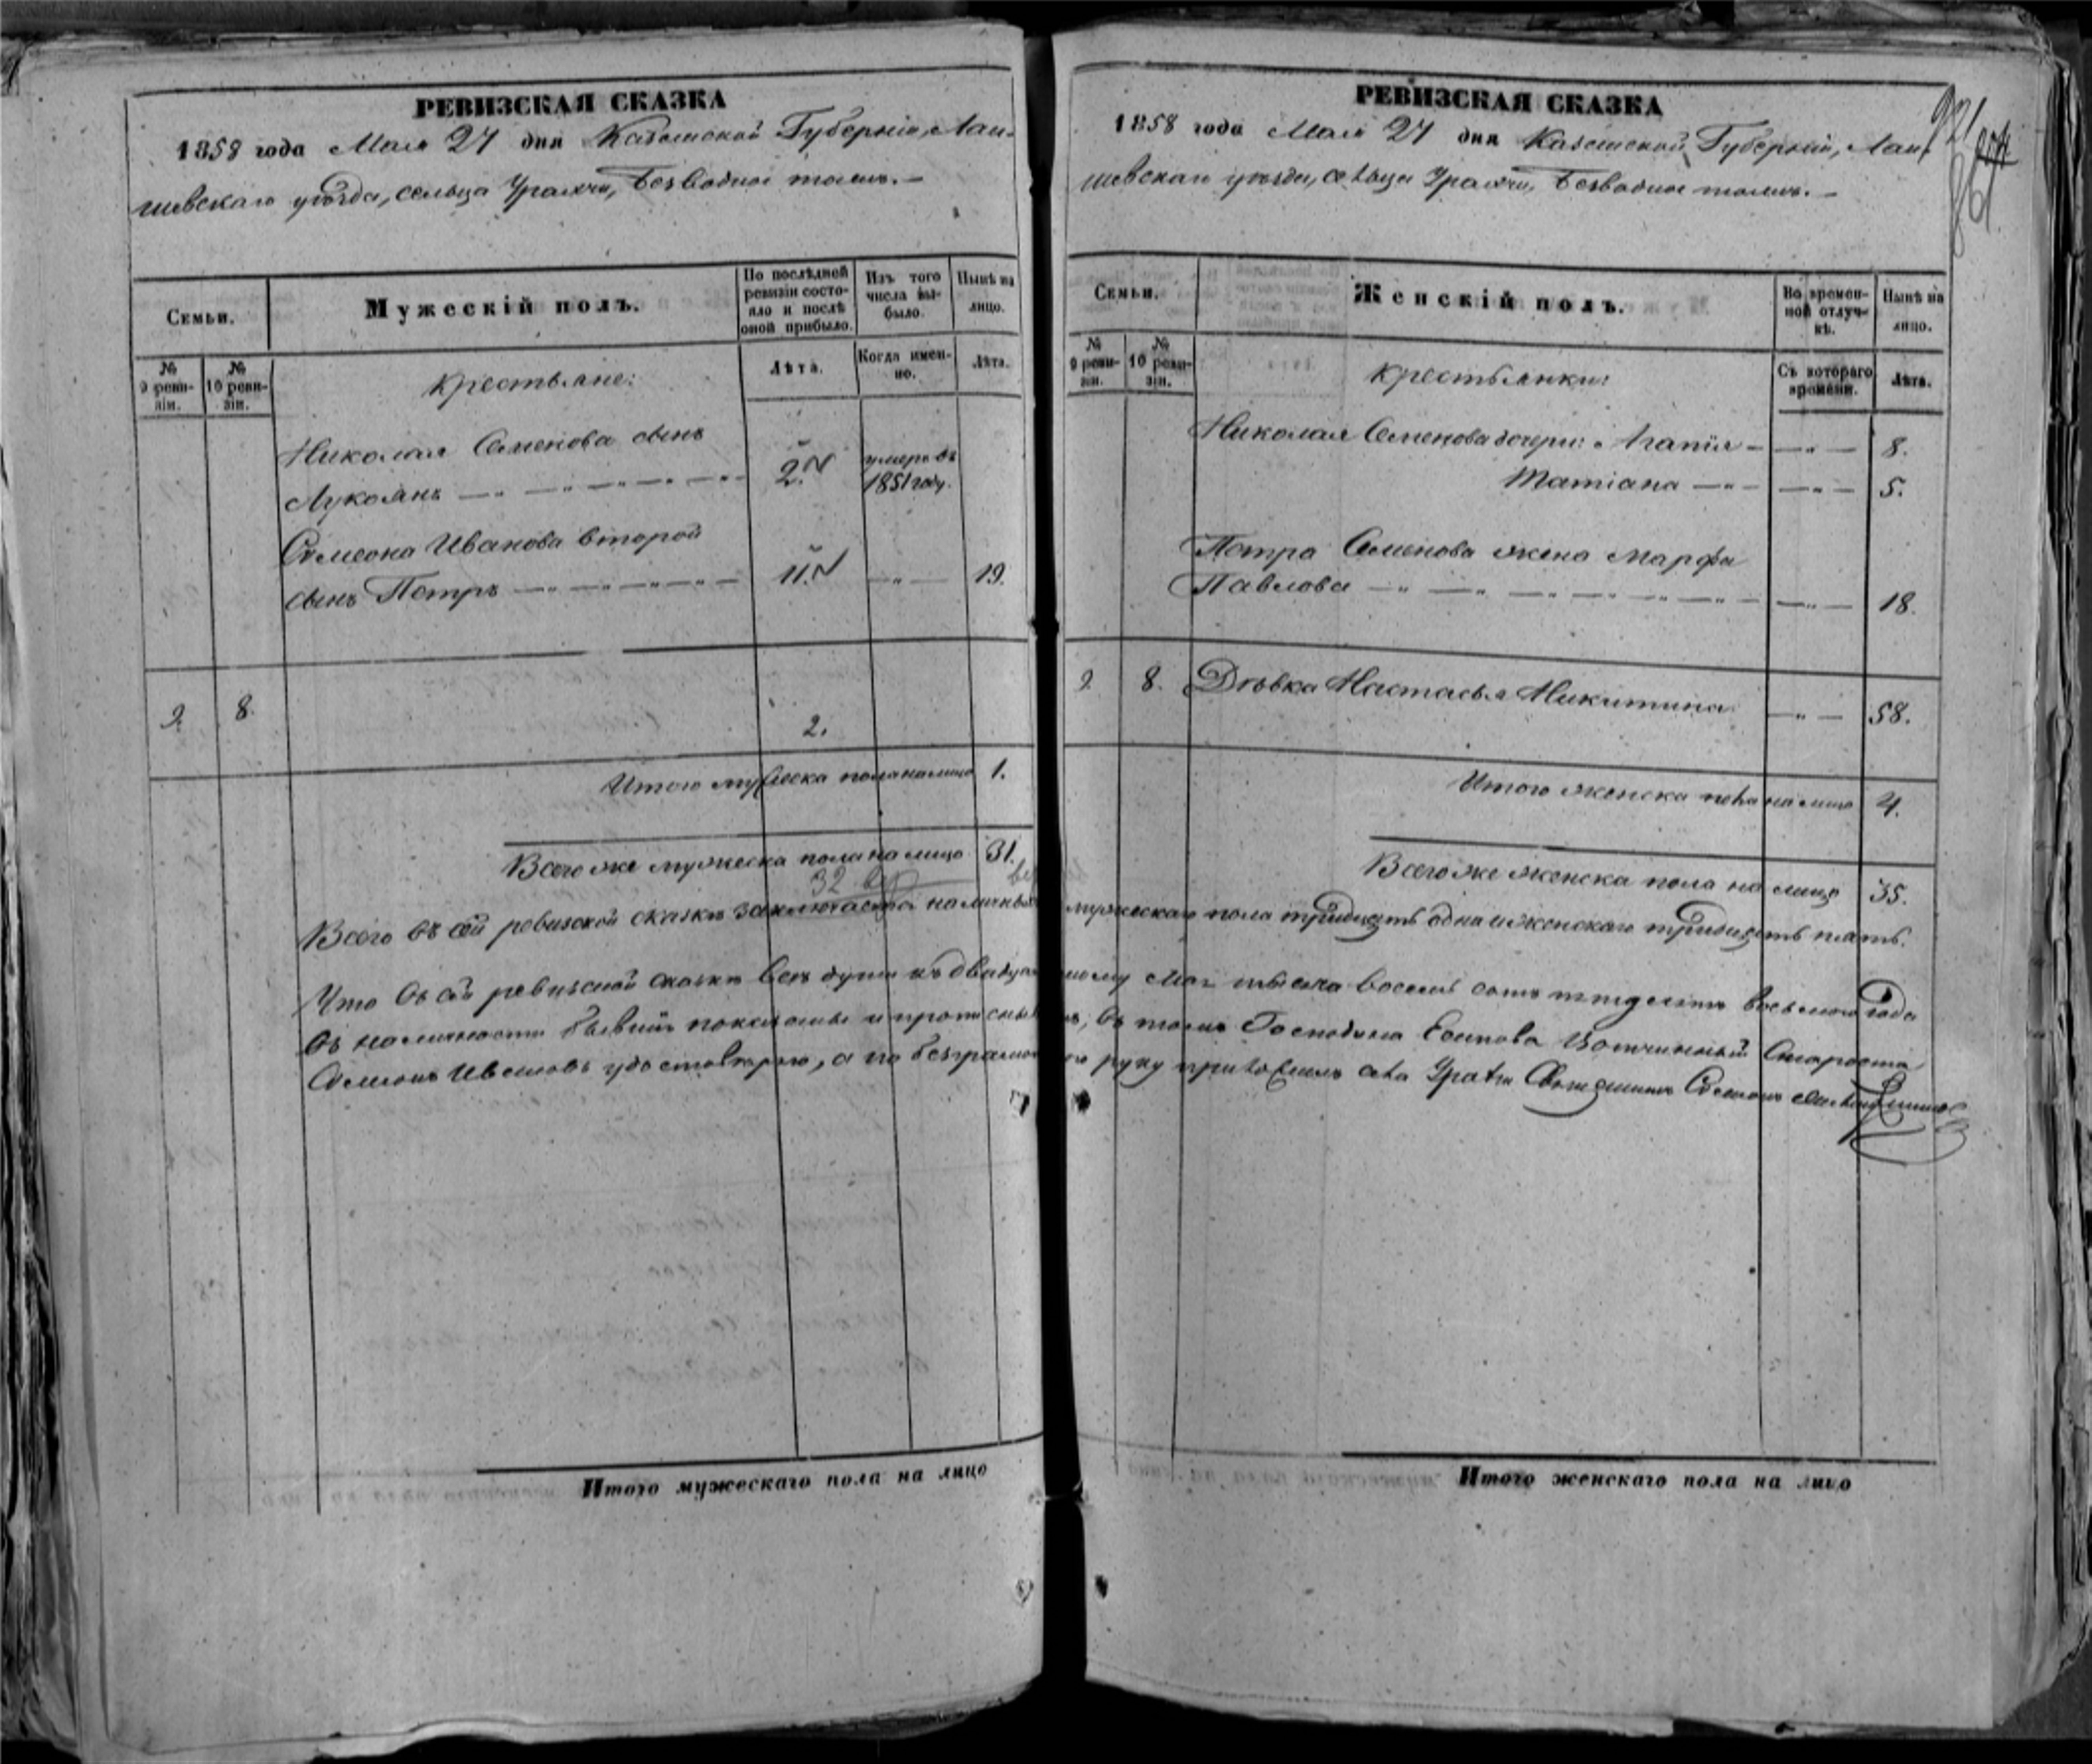 РЕВИЗСКАЯ СКАЗКА
1858 года Мая 27 дня Казанской Губерніи, Лаи-
шевскаго уѣзда, сельца Уракчи, Безводное тожъ.—
Семьи.
Мужескій полъ.
По послѣдней ревизіи состояло и послѣ оной прибыло.
Изъ того числа выбыло.
Нынѣ на лицо.
№ 9 ревизіи.
№ 10 ревизіи.
Лѣта.
Когда именно.
Лѣта.
Крестьяне:
Николая Семенова сынъ
Лукоянъ 2. умеръ въ 1851 году.
Симеона Иванова второй
сынъ Петръ 11. — „ — 19.
9. 8.
2.
Итого мужеска пола на лицо 1.
Всего же мужеска пола на лицо 31.
32
РЕВИЗСКАЯ СКАЗКА
1858 года Мая 27 дня Казанской Губерніи, Лаи-
шевскаго уѣзда, сельца Уракчи, Безводное тожъ.—
921
Семьи.
Женскій полъ.
Во временной отлучкѣ.
Нынѣ на лицо.
№ 9 ревизіи.
№ 10 ревизіи.
Съ котораго времени.
Лѣта.
Крестьянки:
Николая Семенова дочери: Агапія — „ — 8.
Татіана — „ — 5.
Петра Семенова жена Марфа
Павлова — „ — 18.
9. 8. Дѣвка Настасья Никитина — „ — 58.
Итого женска пола на лицо 4.
Всего же женска пола на лицо 35.
Всего въ сей ревизской сказкѣ заключается наличныхъ мужескаго пола тридцать одна и женскаго тридцать пять.
Что въ сей ревизской сказкѣ всѣ души къ двадцать мая тысяча восемь сотъ пятдесятъ восьмого года
въ наличности бывшія показаны и прописныхъ, въ томъ Господина Есипова Вотчинный Староста
Семенъ Ивановъ удостовѣряю, а по безграмотству его руку приложилъ села Священникъ Симеонъ
Итого мужескаго пола на лицо
Итого женскаго пола на лицо